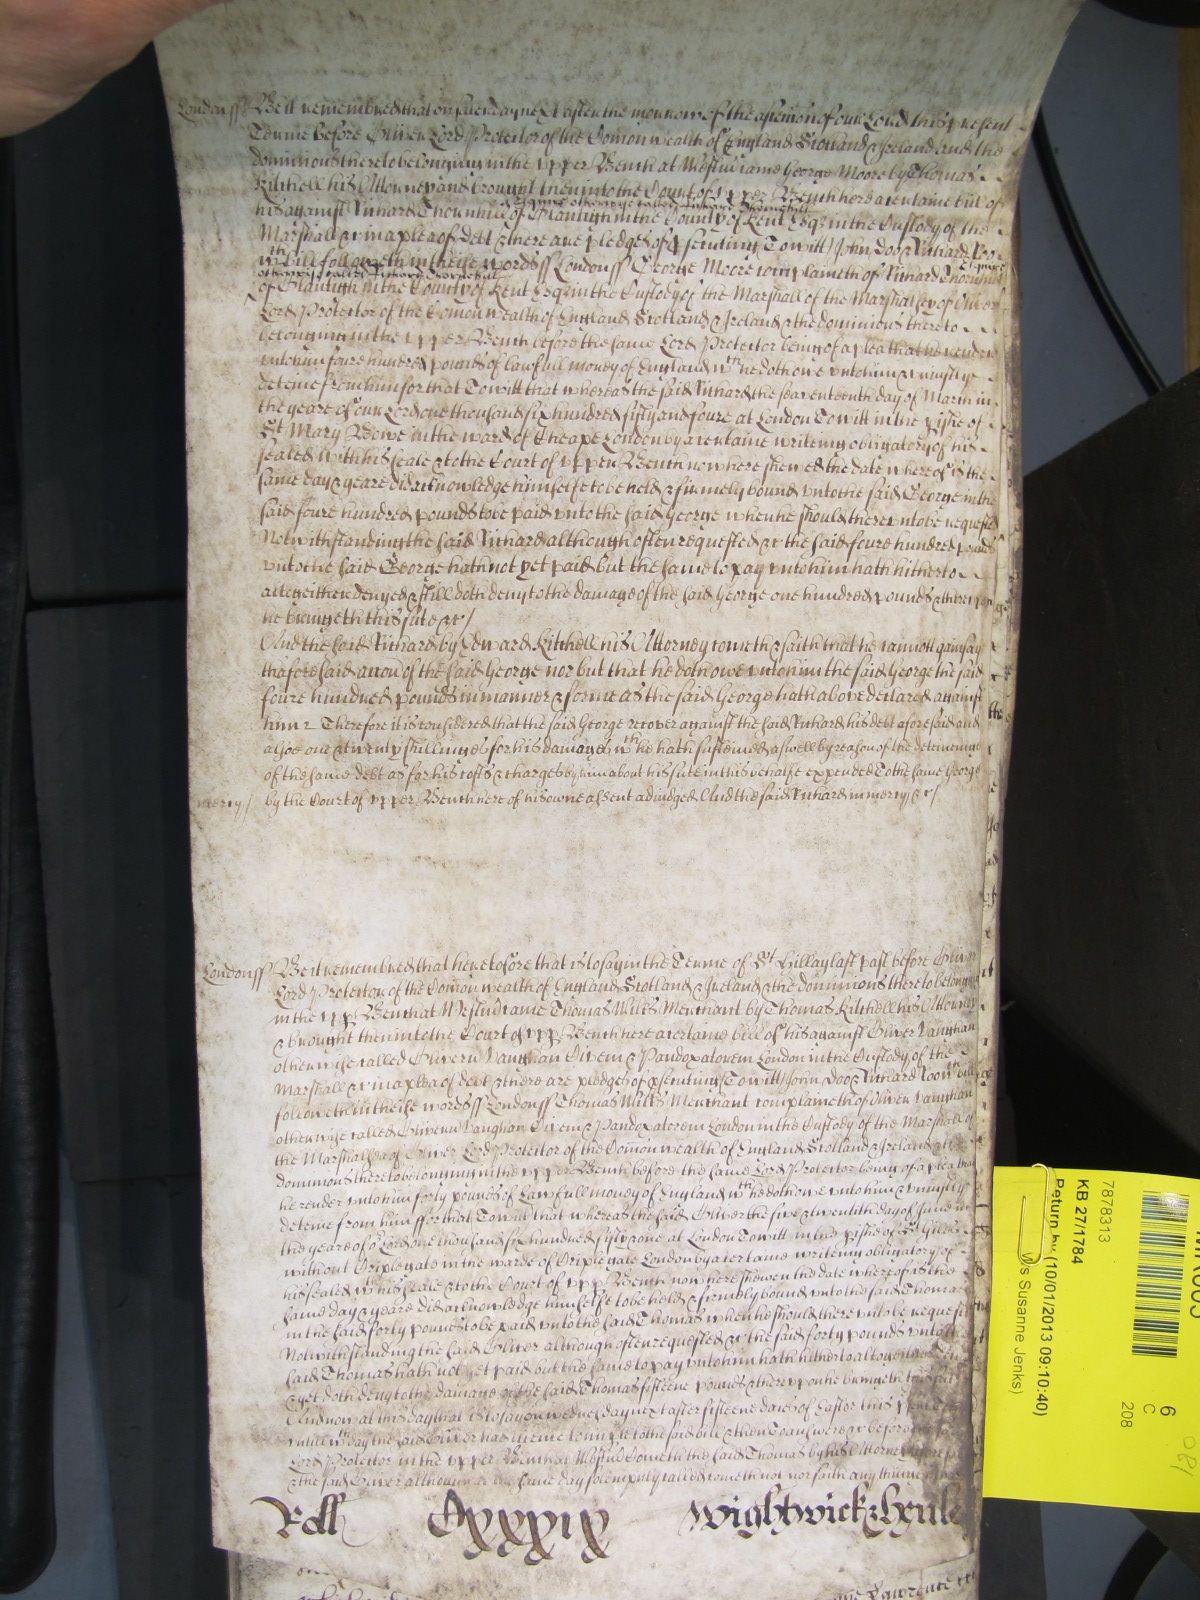 Londonss Be it remembred that on Tuesday next after the morrow of the Asc̄en̄on of our Lord this p̱sent
Terme before Oliver Lord Protector of the Com̄onwealth of England Scotland & Ireland and the
dominions thereto belonging in the upper Bench at Westm̄ came George Moore by Thomas
Kitchell his Attorney and brought then into the Court of upper Bench here a certaine bill of
otherwise called Richard Thornehill
his against Richard Thornhill of Olantigh in the County of Kent Esqr in the Custody of the
Marshall &c in a plea of debt & there are pledges of p̱secuting To witt John Doo & Richard Roo
wch bill followeth in these words ss Londonss George Moore complaineth of Richard Thornhill
otherwise called Richard Thornehill
of Olantigh in the County of Kent Esqr in the Custody of the Marshall of the Marshalsey of Oliver
Lord Protector of the Com̄onwealth of England Scotland & Ireland & the dominions thereto
belonging in the upper Bench before the same Lord Protector being of a plea that he render
unto him foure hundred pounds of lawfull money of England wch he doth owe unto him & uniustly
deteine from him for that To witt that whereas the said Richard the seaventeenth day of March in
the yeare of our Lord one thousand six hundred fifty and foure at London To witt in the p̱ishe of
St Mary Bowe in the ward of Cheape London by a certaine writeing obligatory of his
sealed with his seale & to the Court of upper Bench now here shewed the date whereof is the
same day & yeare did acknowledge himselfe to be held & firmely bound unto the said George in the
said foure hundred pounds to be paid unto the said George when he should thereunto be requested
Notwithstanding the said Richard although often requested &c the said foure hundred pounds
unto the said George hath not yet paid but the same to pay unto him hath hitherto
altogeither denyed & still doth deny to the damage of the said George one hundred pounds & thereupon
he bringeth this sute &c/
And the said Richard by Edward Kitchell his Attorney cometh & saith that he cannott gainsay
thaforesaid acc̄on of the said George nor but that he doth owe unto him the said George the said
foure hundred pounds in manner & forme as the said George hath above declared against
him Therefore it is considered that the said George recover against the said Richard his debt aforesaid and
alsoe one & twenty shillinges for his damages wch he hath susteined aswell by reason of the deteineing
of the same debt as for his costs & charges by him about his sute in this behalfe expended To the same George
mercy/ by the Court of upper Bench here of his owne assent adiudged And the said Richard in mercy &c/
Londonss Be it remembred that heretofore that is to say in the Terme of St Hillary last past before Oliver
Lord Protector of the Com̄onwealth of England Scotland & Ireland & the dominions thereto belonging
in the upp̱ Bench at Westm̄ came Thomas Mills Merchant by Thomas Kitchell his Attorney
& brought then into the Court of upp̱ Bench here a certaine bill of his against Oliver Vaughan
otherwise called Oliverū Vaughan Civem & Pandoxatorem London in the Custody of the
Marshall &c in a plea of debt & there are pledges of p̱secuting To witt John Doo & Richard Roo wch bill
followeth in these words ss Londonss Thomas Mills Merchant complaineth of Oliver Vaughan
otherwise called Oliverū Vaughan Civem & Pandoxatorem London in the Custody of the Marshall of
the Marshalsea of Oliver Lord Protector of the Com̄onwealth of England Scotland & Ireland & the
dominions thereto belonging in the upper Bench before the same Lord Protector being of a plea that
he render unto him forty pounds of Lawfull money of England wch he doth owe unto him & uniustly
deteine from him ss for that To witt that whereas the said Oliver the five & twentith day of June in
the yeare of or Lord one thousand six hundred fifty & one at London To witt in the p̱ishe of St Giles
without Criplegate in the warde of Criplegate London by a certaine writeing obligatory of
his sealed wth his seale & to the Court of upp̱ Bench now here shewen the date whereof is the
same day & yeare did acknowledge himselfe to be held & firmely bound unto the said Thomas
in the said forty pounds to be paid unto the said Thomas when he should thereunto be requested
Notwithstanding the said Oliver although often requested &c the said forty pounds unto the
said Thomas hath not yet paid but the same to pay unto him hath hitherto altogeither
& yet doth deny to the damage of the said Thomas fifteene pounds & thereupon he bringeth this
And now at this day that is to say on wednesday next after fifteene daies of Easter this
untill wch day the said Oliver had licence to imp̱le to the said bill & then to answere &c before
Lord Protector in the upper Bench at Westm̄ Cometh the said Thomas by his Attorney
& the said Oliver although the same day solempnly called cometh not nor saith any thing
Roll CXXXIX Wightwick &
KB 27/1784
7878313
Return by (10/01/2013 09:10:40)
Susanne Jenks)
6
C
208